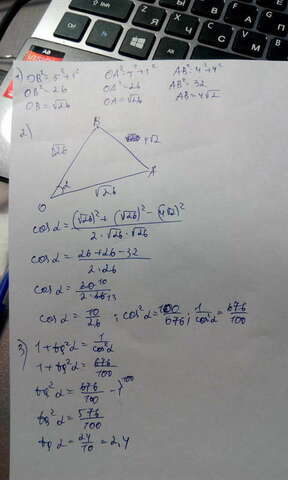 1) OB²=5²+1² OA²=5²+1² AB²=4²+4²
OB²=26 OA²=26 AB²=32
OB=√26 OA=√26 AB=4√2
2)
B
√26 4√2
A
α
√26
O
cos α = ((√26)² + (√26)² − (4√2)²) / (2·√26·√26)
cos α = (26+26−32) / (2·26)
cos α = 20 10 / 2·26 13
cos α = 10/26 ; cos²α = 100/676 ; 1/cos²α = 676/100
3) 1+tg²α = 1/cos²α
1+tg²α = 676/100
tg²α = 676/100 − 1 100
tg²α = 576/100
tg α = 24/10 = 2,4